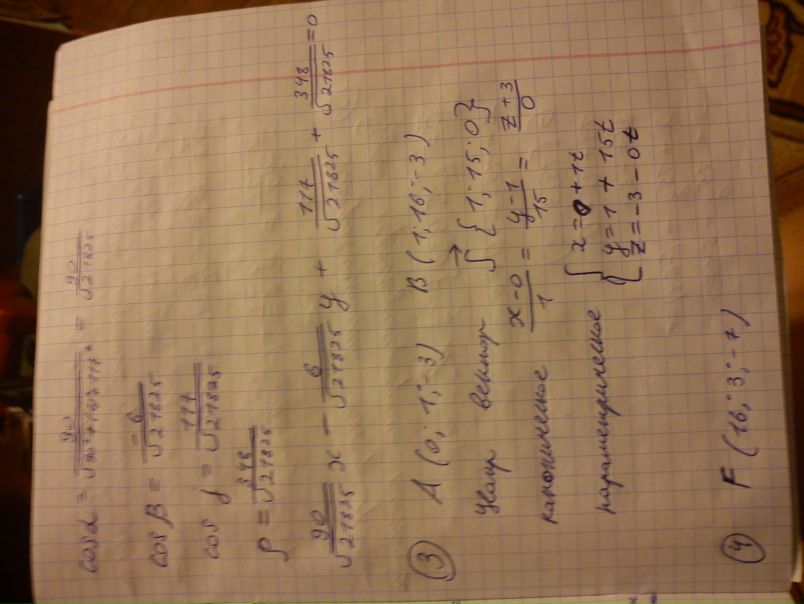 cos α = 90/√(90²+(-6)²+117²) = 90/√21825
cos β = -6/√21825
cos γ = 117/√21825
ρ = 348/√21825
90/√21825 x - 6/√21825 y + 117/√21825 + 348/√21825 = 0
③ A (0; 1; -3) B (1; 16; -3)
Напр вектор S⃗ {1; 15; 0}
каноническое x-0/1 = y-1/15 = z+3/0
параметрическое { x=0+1t
y=1+15t
z=-3-0t
④ F (16; 3; -7)